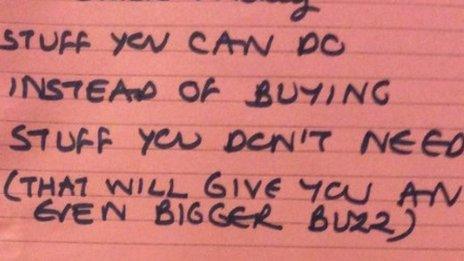 STUFF YOU CAN DO
INSTEAD OF BUYING
STUFF YOU DON'T NEED
(THAT WILL GIVE YOU AN
EVEN BIGGER BUZZ)